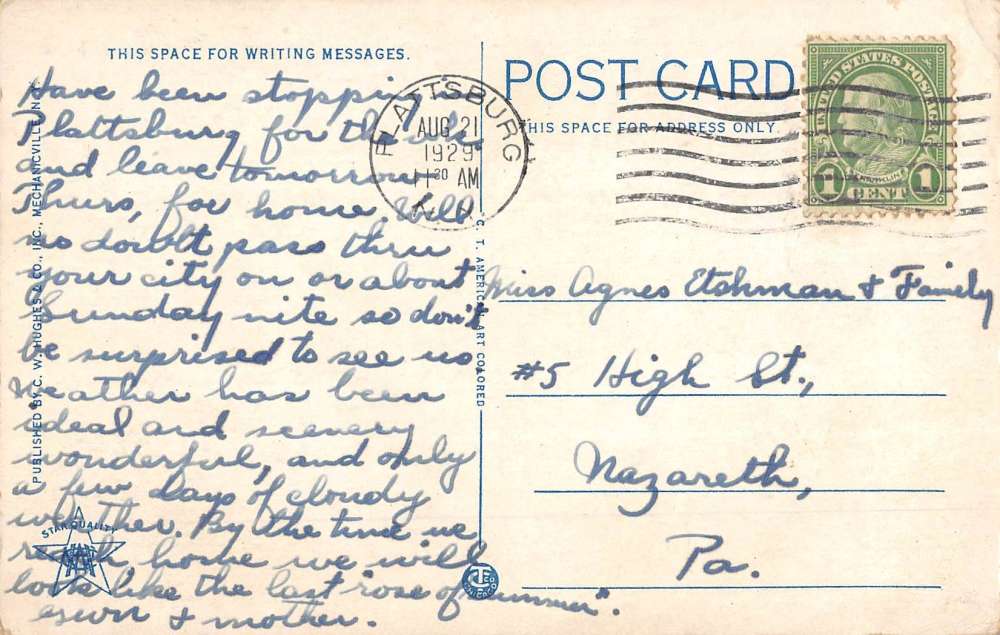 THIS SPACE FOR WRITING MESSAGES.
Have been stopping in
Plattsburg for the
and leave tomorrow
Thurs, for home. Will
no doubt pass thru
your city on or about
Sunday nite so don't
be surprised to see us
Weather has been
ideal and scenery
wonderful, and only
a few days of cloudy
weather. By the time we
reach home we will
look like the last "rose of summer".
& mother.
PUBLISHED BY C. W. HUGHES & CO., INC., MECHANICVILLE, N.Y.
STAR QUALITY
C. T. AMERICAN ART COLORED
PLATTSBURG
AUG 21
1929
11 30 AM
N.Y.
POST CARD
THIS SPACE FOR ADDRESS ONLY.
UNITED STATES POSTAGE
FRANKLIN
1 CENT 1
Miss Agnes Etchman & Family
#5 High St.,
Nazareth,
Pa.
CT CO
CHICAGO